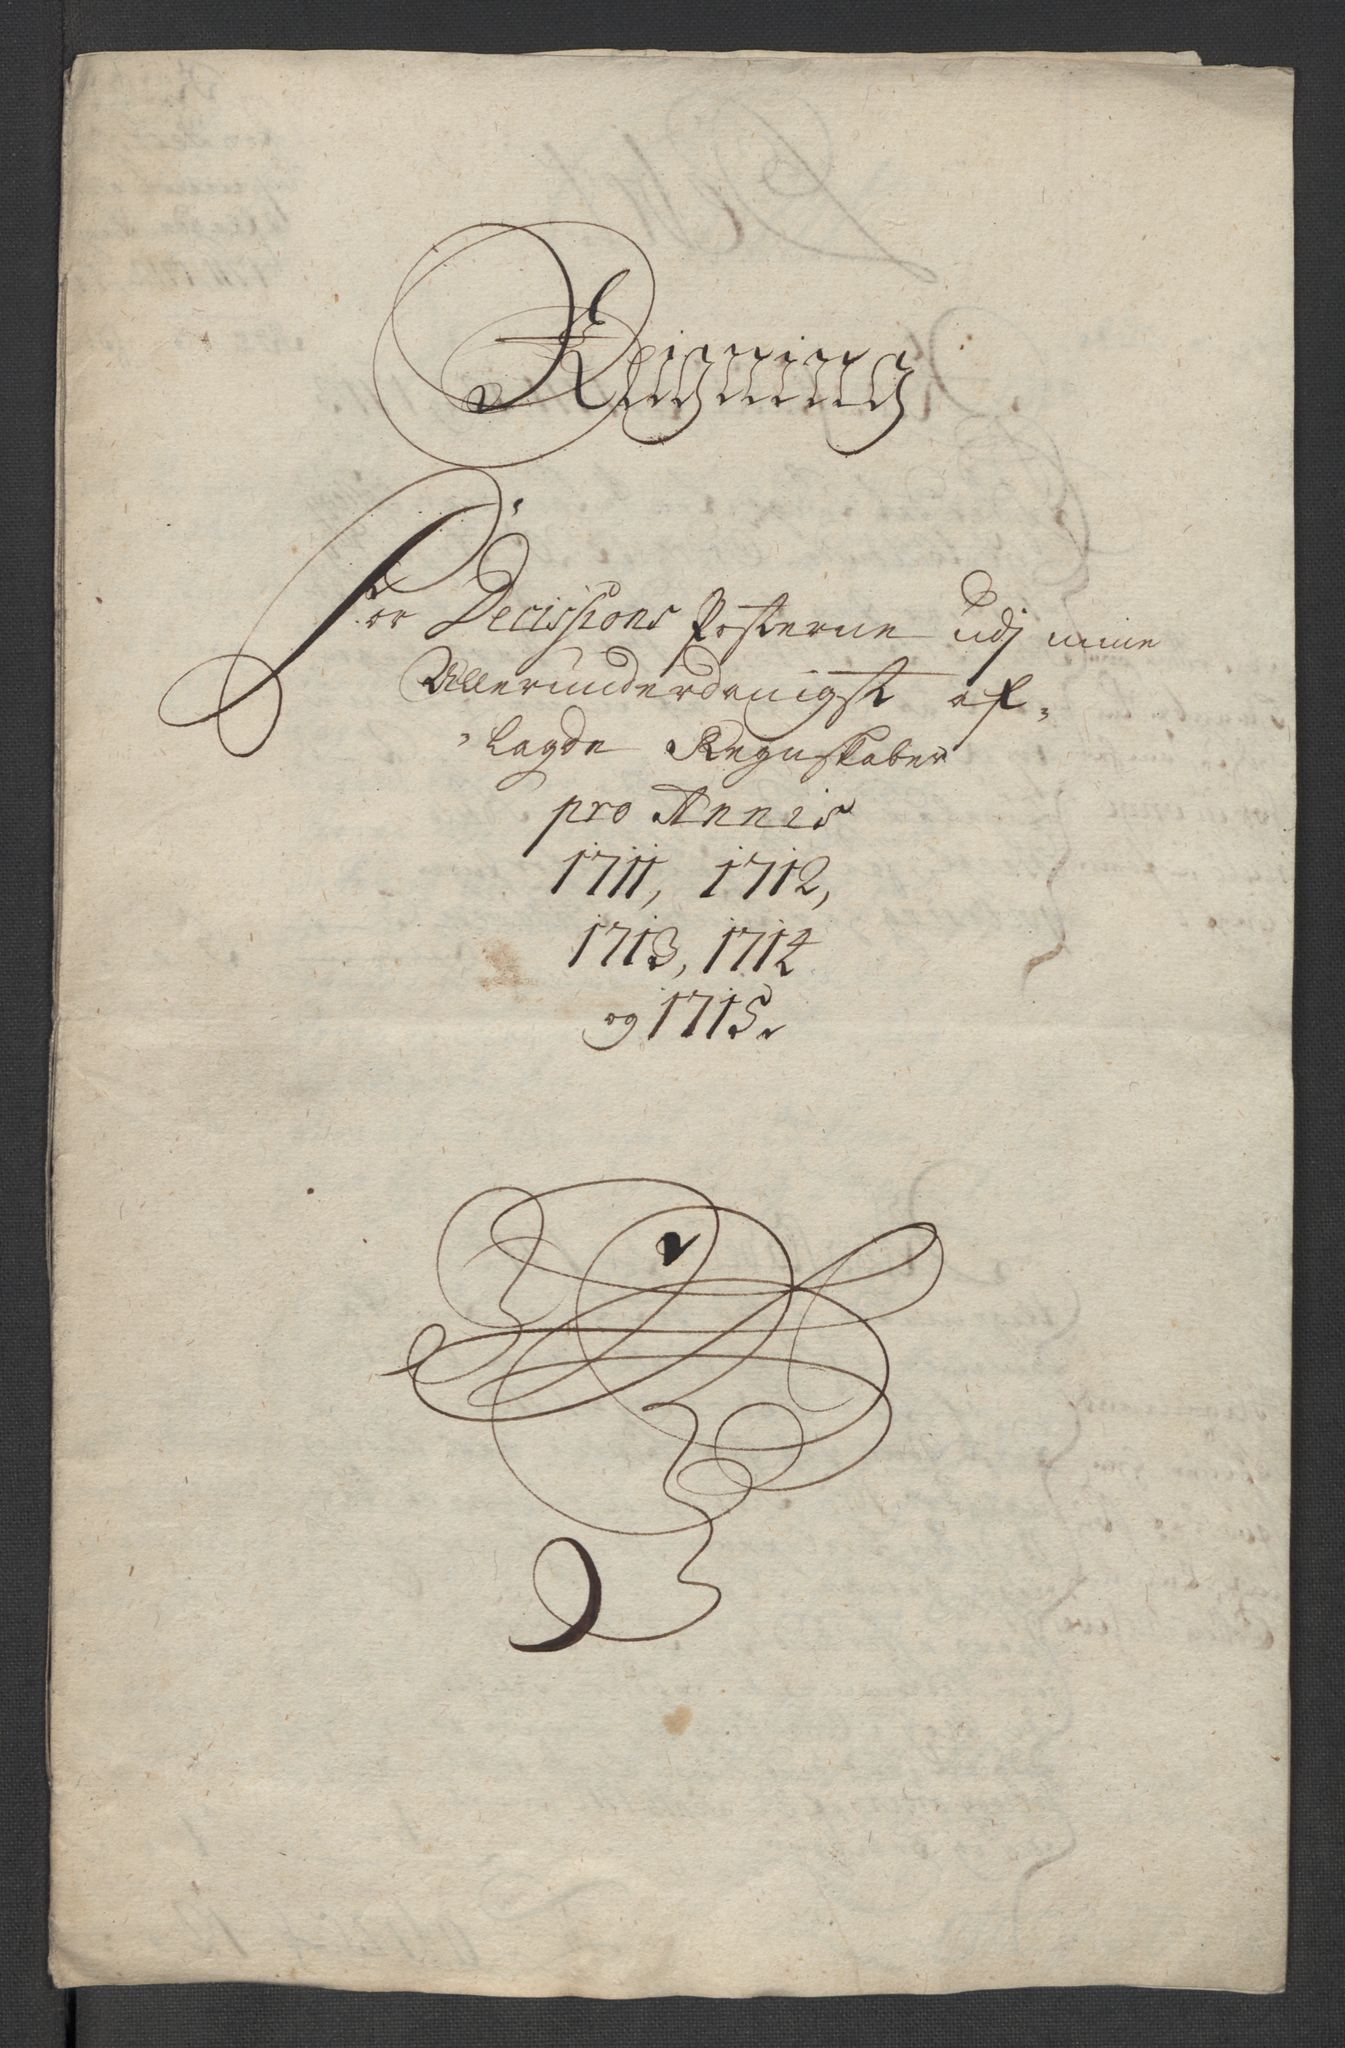 Reigning
for Decissions Posterne udj mine
Allerunderdanigst af-
lagde Regnskaber
pro Annis
1711, 1712,
1713, 1714
og 1715.